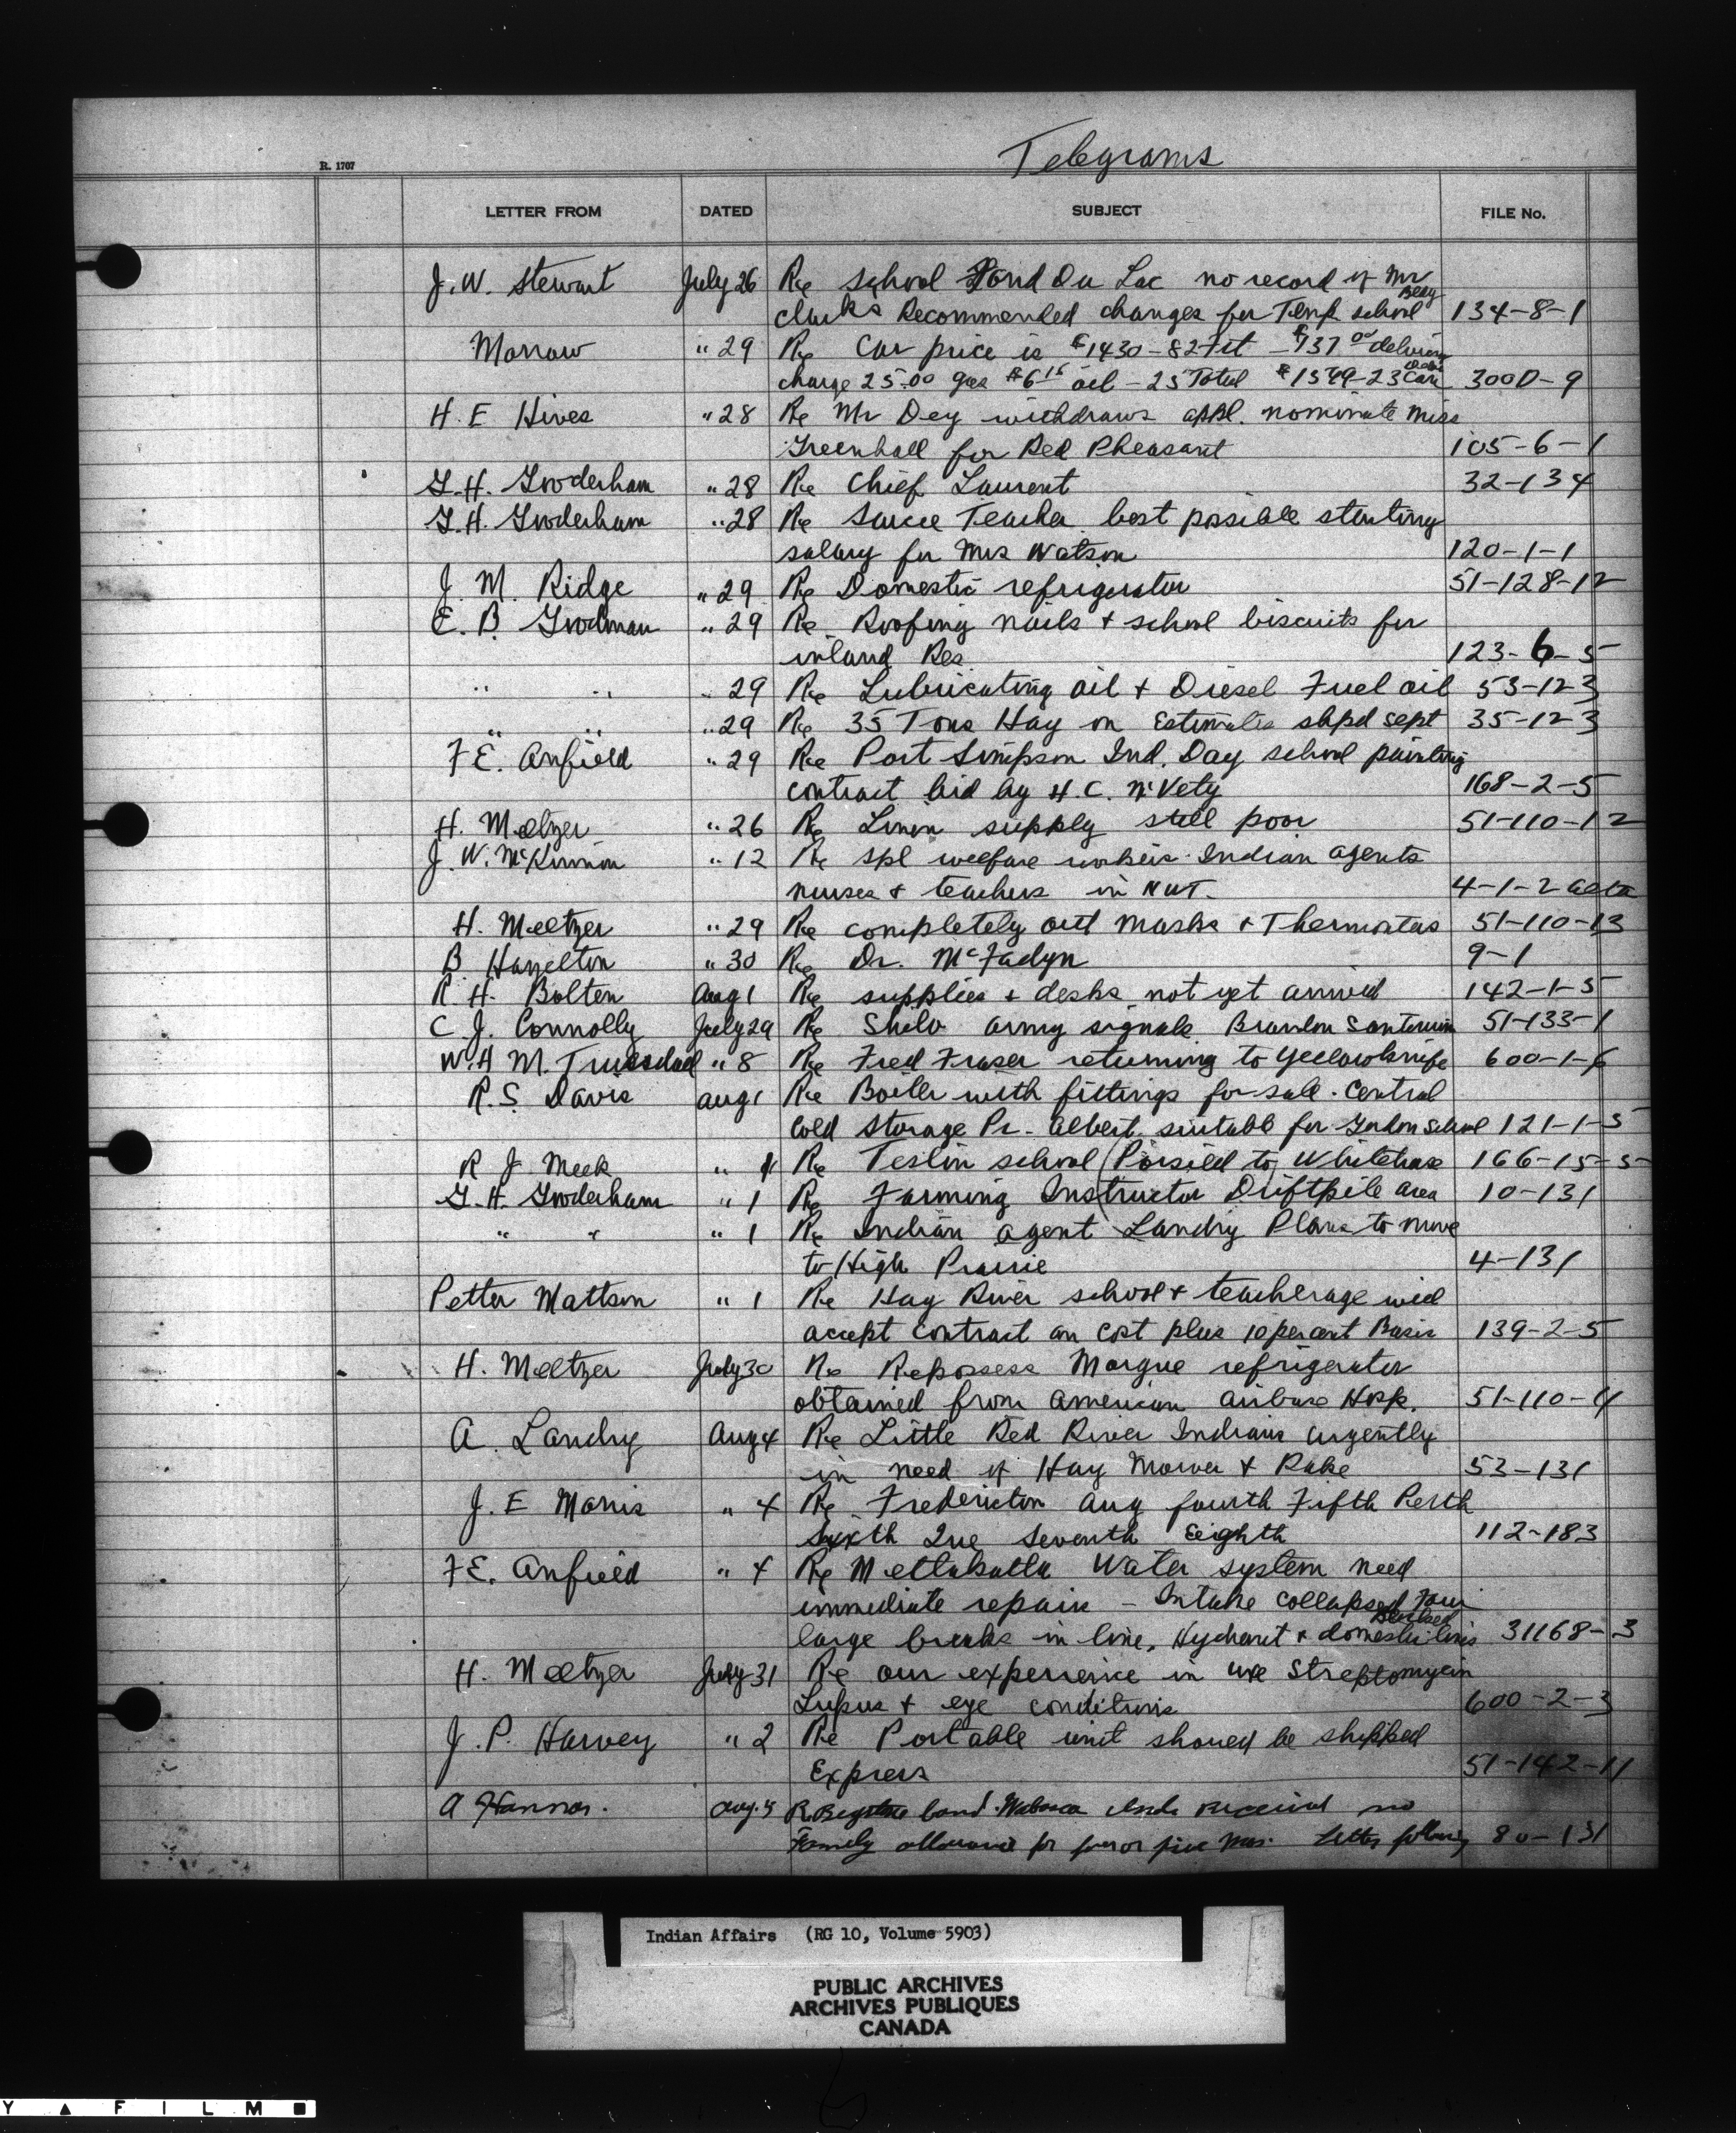 Telegrams
R. 1707
LETTER FROM DATED SUBJECT FILE No.
J. W. Stewart July 26 Re school Fond Du Lac no record of Mr
Clarks Recommended changes for Temp school Bldg 134-8-1
Morrow " 29 Re Car price is $1430-82 $737.00 delivery
charge 25.00 gas $6.15 oil - 25 Total $1549-23 300D-9
H. E Hives " 28 Re Mr Dey withdraws appl. nominate Miss
Greenhall for Red Pheasant 105-6-1
G. H. Gooderham " 28 Re Chief Laurent 32-134
G. H. Gooderham " 28 Re Sarcee Teacher best possible starting
salary for Mrs Watson 120-1-1
J. M. Ridge " 29 Re Domestic refrigerator 51-128-12
E. B. Goodman " 29 Re Roofing nails + school biscuits for
inland Res. 123-6-5
" " " 29 Re Lubricating oil + Diesel Fuel oil 53-123
" " " 29 Re 35 Tons Hay on Estimates shpd Sept 35-123
F E. Anfield " 29 Re Port Simpson Ind. Day school painting
contract bid by H. C. McVety 168-2-5
H. Meltzer " 26 Re Linen supply still poor 51-110-12
J. W. McKinnon " 12 Re spl welfare workers Indian agents
nurses + teachers in NWT. 4-1-2
H. Meltzer " 29 Re completely out masks + Thermostas 51-110-13
B. Hamelton " 30 Re Dr. McFadyn 9-1
R. H. Bolten Aug 1 Re supplies + desks not yet arrived 142-1-5
C J. Connolly July 29 Re Shilo army signals Brandon 51-133-1
W. H M. Truesdael " 8 Re Fred Fraser returning to Yellowknife 600-1-6
R. S. Davis Aug 1 Re Boiler with fittings for sale. Central
Cold Storage Pr. Albert suitabl for Gordon School 121-1-5
R J Meek " 1 Re Teslin school (Porsild to Whitehorse 166-15-5
G. H. Gooderham " 1 Re Farming Instructor Driftpile area 10-131
" " " 1 Re Indian agent Landry Plans to move
to High Prairie 4-131
Petter Mattson " 1 Re Hay River school + teacherage will
accept contract on cost plus 10 per cent Basis 139-2-5
H. Meltzer July 30 Re Repossess Morgue refrigerator
obtained from American airbase Hosp. 51-110-4
A. Landry Aug 4 Re Little Red River Indians urgently
in need of Hay Mower + Rake 53-131
J. E Morris " 4 Re Fredericton Aug fourth Fifth Perth
sixth Que Seventh Eighth 112-183
F E. Anfield " 4 Re Metlakatla Water system need
immediate repair - Intake collapsed Four
large breaks in line. Hydrent + domestic lines 31168-3
H. Meltzer July 31 Re our experience in use Streptomycin
Lupus + eye conditions 600-2-3
J. P. Harvey " 2 Re Portable unit should be shipped
Express 51-142-11
A Hannas. Aug. 5 Re band Wabasca Inds received no
Family allowance for four or five mos. Letter following 80-131
Indian Affairs (RG 10, Volume 5903)
PUBLIC ARCHIVES
ARCHIVES PUBLIQUES
CANADA
Y ▲ F I L M